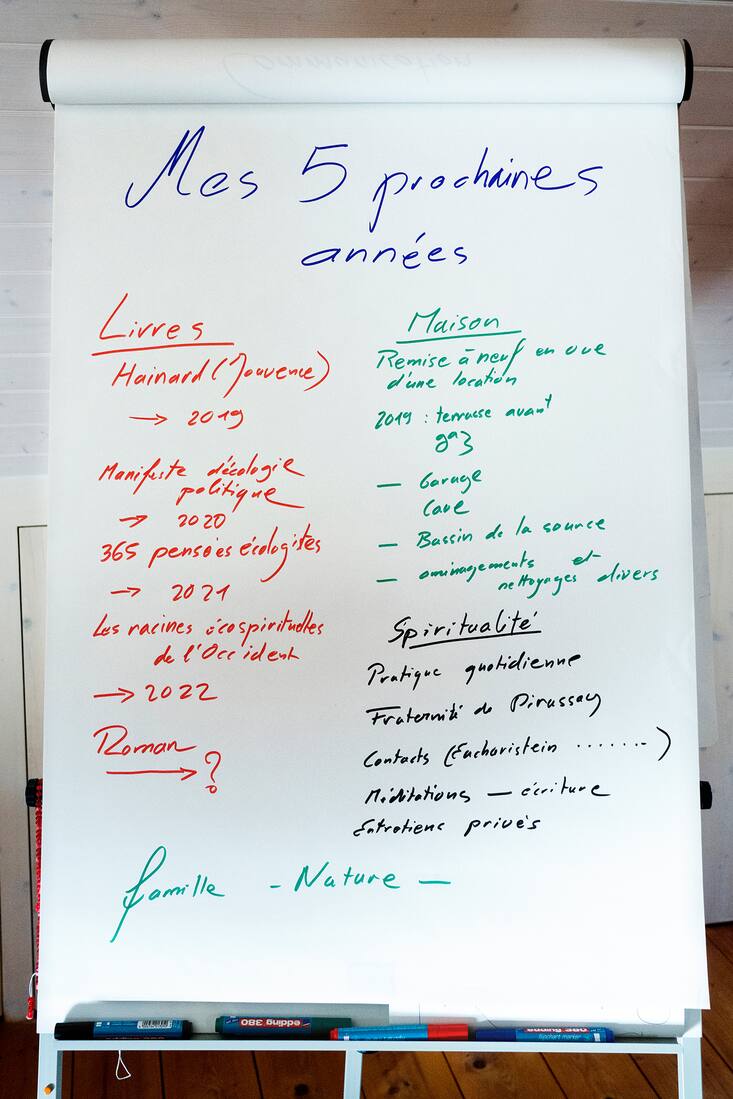 Mes 5 prochaines
années
Livres
Hainard (Jouvence)
→ 2019
Manifeste d'écologie
politique
→ 2020
365 pensées écologistes
→ 2021
Les racines écospirituelles
de l'Occident
→ 2022
Roman
→ ?
Maison
Remise à neuf en vue
d'une location
2019 : terrasse avant
gaz
— Garage
Cave
— Bassin de la source
— aménagements et
nettoyages divers
Spiritualité
Pratique quotidienne
Fraternité de Pirassay
Contacts (Eucharistein .......)
Méditations — écriture
Entretiens privés
famille - Nature —
edding 380